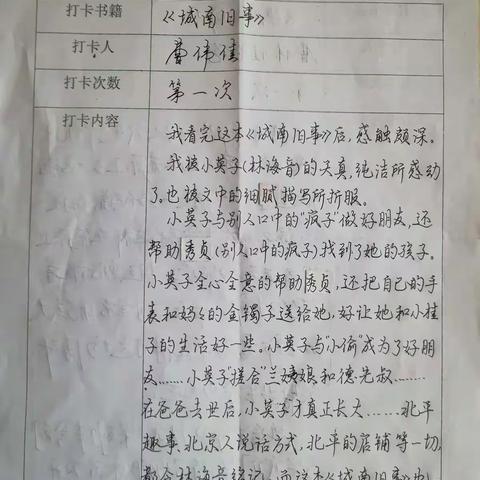 打卡书籍 《城南旧事》
打卡人 曹伟佳
打卡次数 第一次
打卡内容 我看完这本《城南旧事》后,感触颇深。
我被小英子(林海音)的天真,纯洁所感动
了。也被文中的细腻描写所折服。
小英子与别人口中的"疯子"做好朋友,还
帮助秀贞(别人口中的疯子)找到了她的孩子。
小英子全心全意的帮助秀贞,还把自己的手
表和妈々的金镯子送给她,好让她和小桂
子的生活好一些。小英子与"小偷"成为了好朋
友……小英子"搓合"兰姨娘和德先叔……
在爸爸去世后,小英子"才真正长大……北平
趣事、北京人说话方式,北平的店铺等一切,
都令林海音 而这本《城南旧事》也